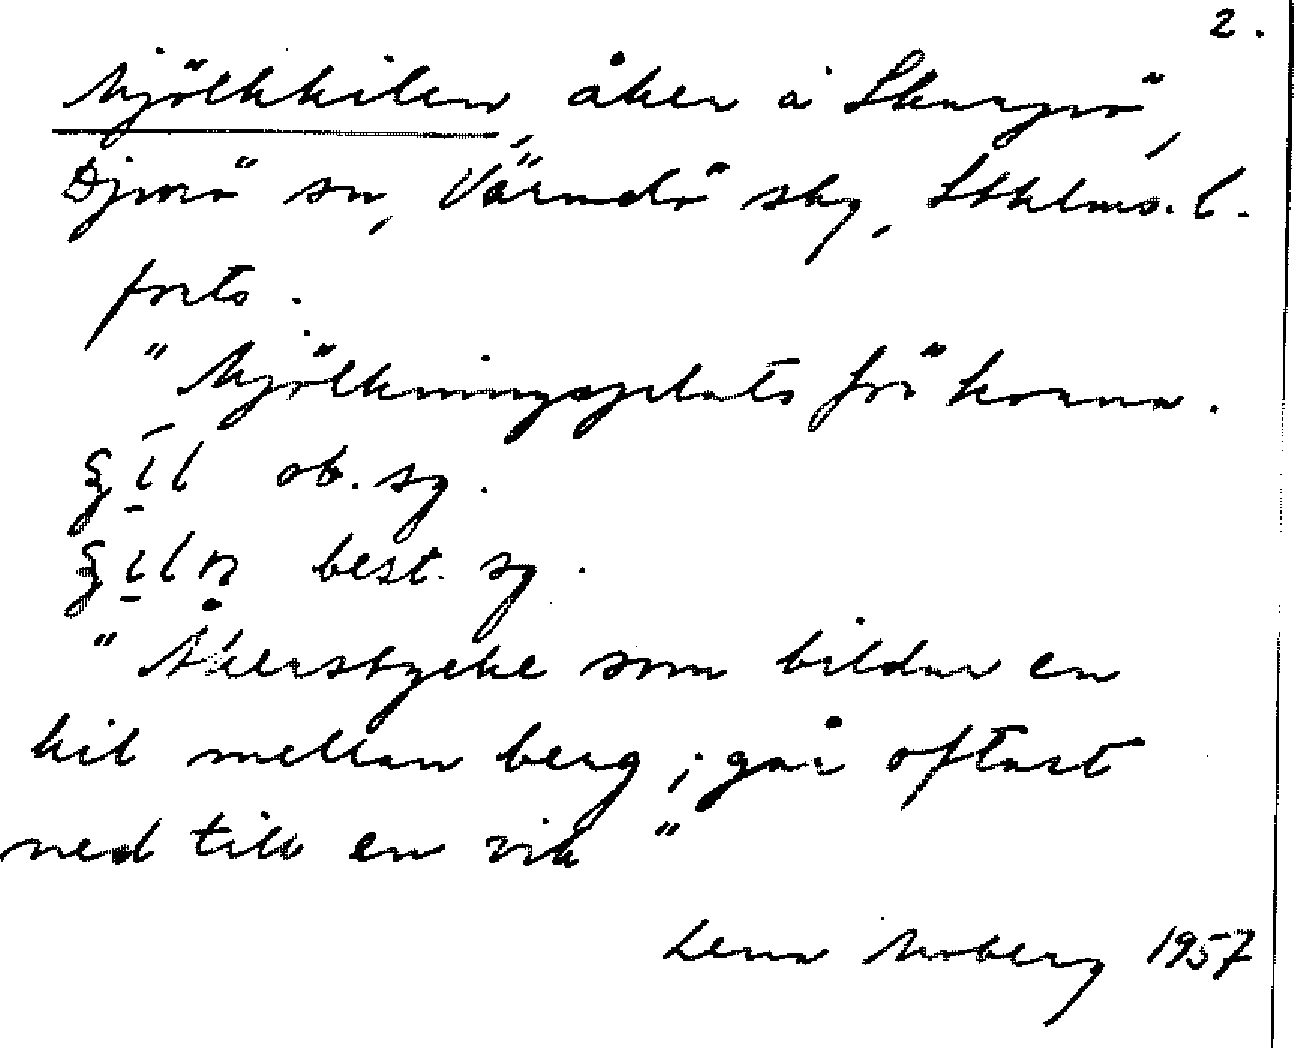 2.
Mjölkkilen, åker å Skarpö,
Djurö sn, Värmdö skg, Sthlms. l.
forts.
"Mjölkningsplats för korna.
ob. sg.
best. sg.
"Åkerstycke som bildar en
kil mellan berg; går oftast
ned till en vik"
Lena Moberg 1957